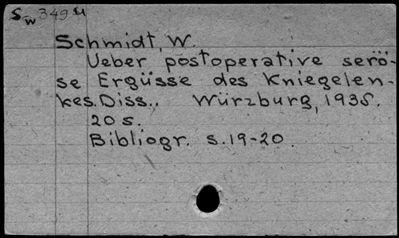 Sw 349
Schmidt, W.
Ueber postoperative serö-
se Ergüsse des Kniegelen-
kes. Diss.. Würzburg, 1935.
20 s.
Bibliogr. s. 19-20